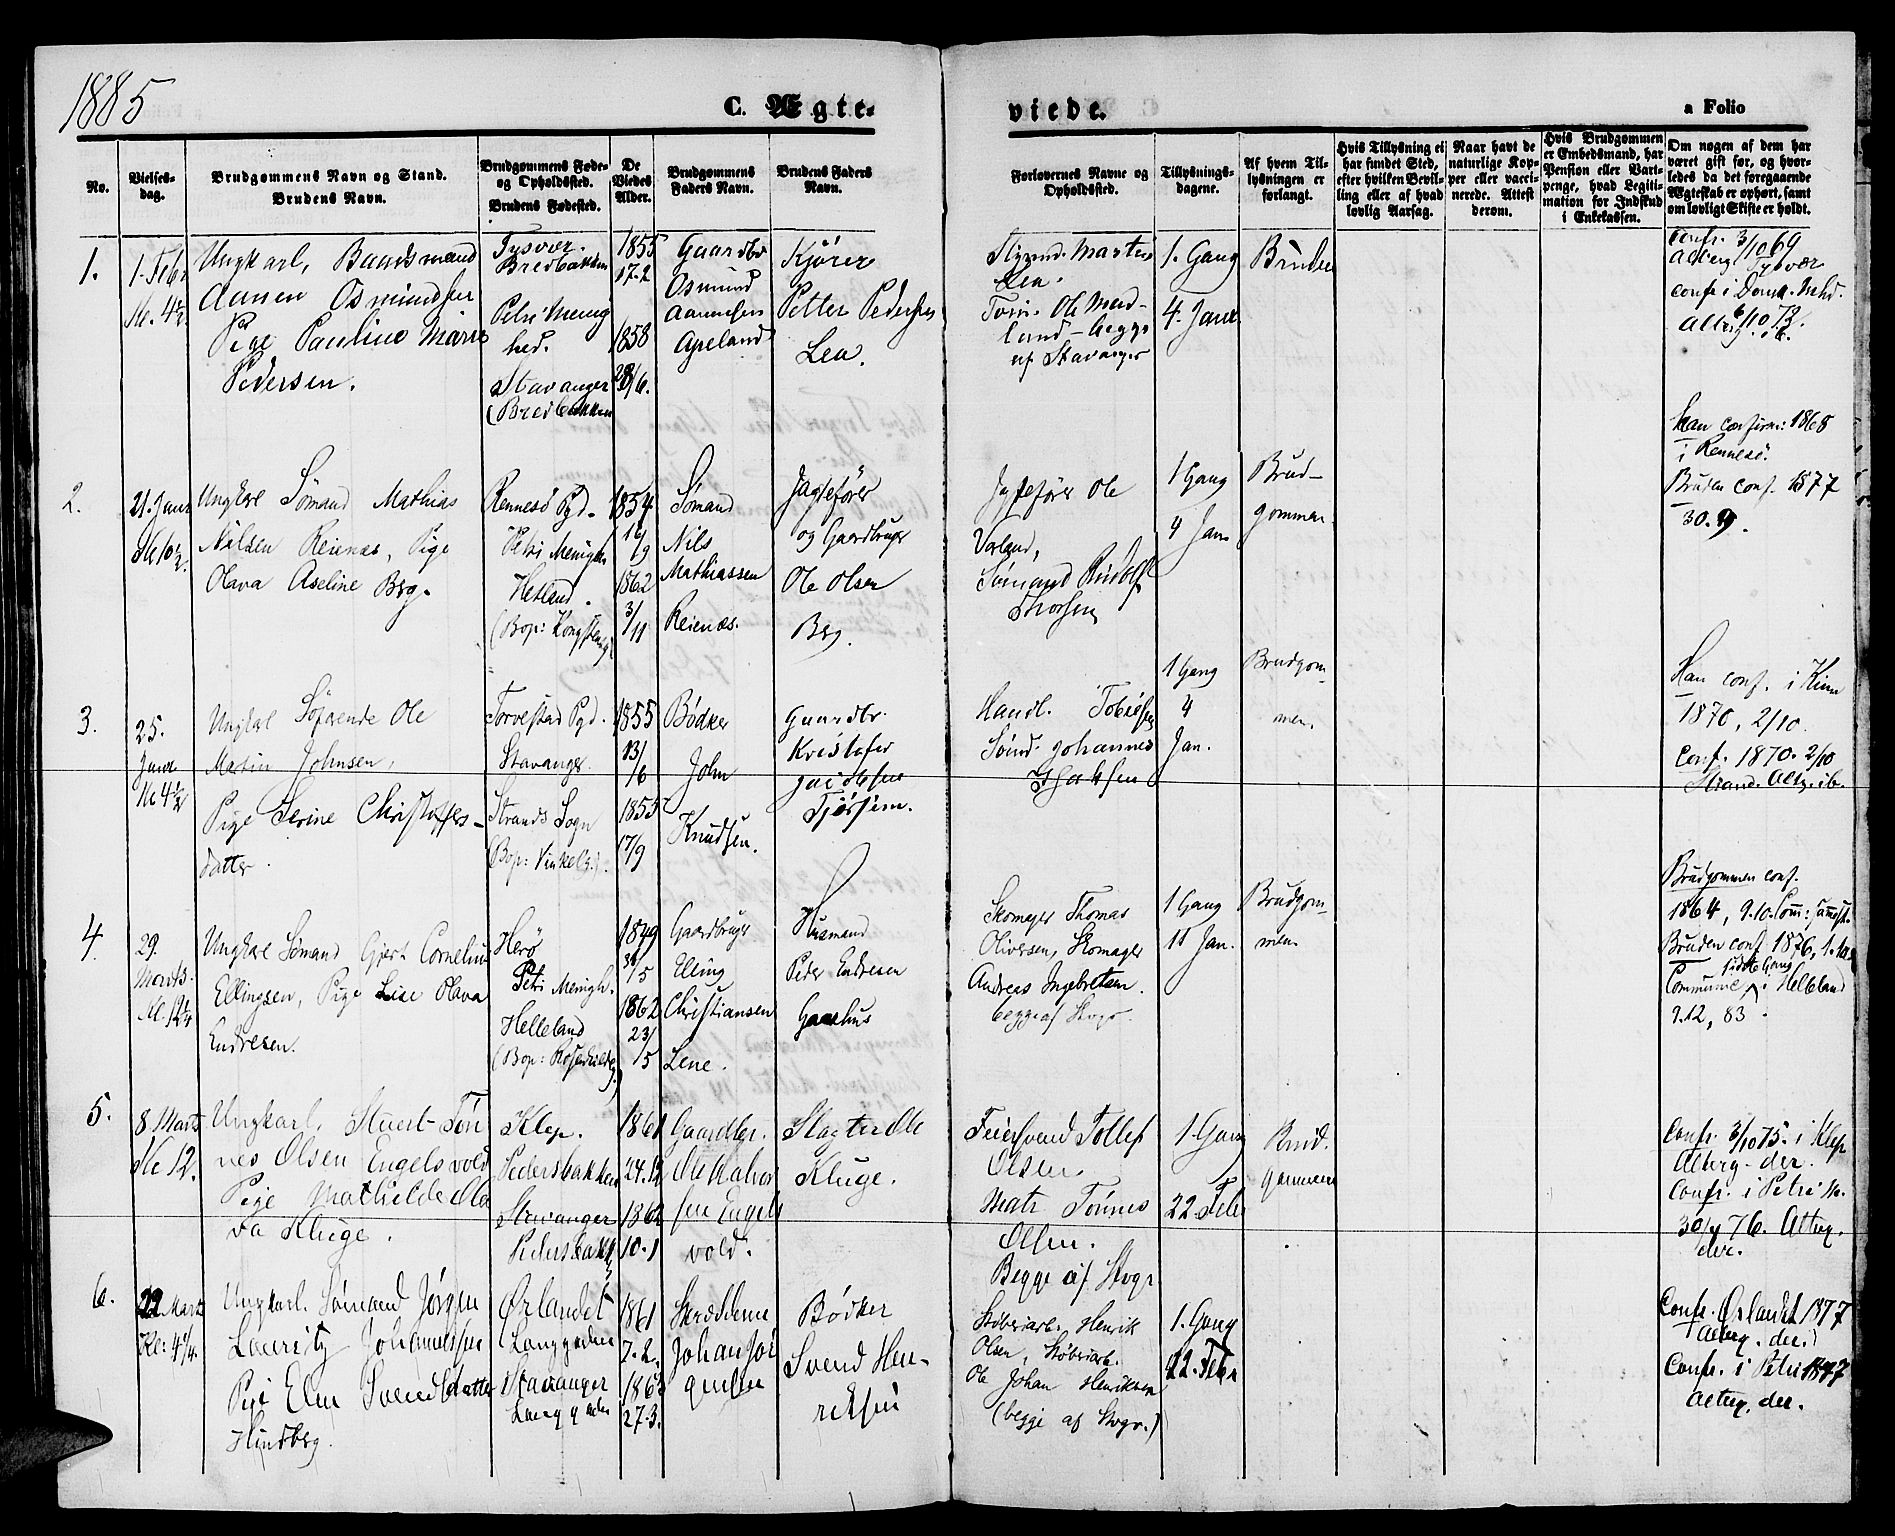 1885
C. Ægte-
viede.
a Folio
No.
Vielses-
dag.
Brudgommens Navn og Stand.
Brudens Navn.
Brudgommens Føde-
og Opholdssted.
Brudens Fødested.
De
Viedes
Alder.
Brudgommens
Faders Navn.
Brudens Faders
Navn.
Forlovernes Navne og
Opholdssted.
Tillysnings-
dagene.
Af hvem Til-
lysningen er
forlangt.
Hvis Tillysning ei
har fundet Sted,
efter hvilken Bevil-
ling eller af hvad
lovlig Aarsag.
Naar havt de
naturlige Kop-
per eller vacci-
nerede. Attest
derom.
Hvis Brudgommen
er Embedsmand, har
Pension eller Vart-
penge, hvad Legiti-
mation for Indskud
i Enkekassen.
Om nogen af dem har
været gift før, og hvor-
ledes da det foregaaende
Ægteskab er ophørt, samt
om lovligt Skifte er holdt.
1.
1. Febr
Kl. 4½.
Ungkarl, Baadsmand
Aanen Osmundsen
Pige Pauline Marie
Pedersen.
Tysvær.
Bredbakken
Petri Menig
hed.
Stavanger
(Bredbakken
1855
17.2
1858
Gaardbr
Osmund
Aanensen
Apeland
Kjører
Petter Pedersen
Lea.
Styrmd. Martin
Lea.
Tøm. Ole Mad-
land - begge
af Stavanger
1. Gang
4. Janr.
Bruden
Confr. 3/10 69
Attberg. Tysvær
conf. i Domk. Mhd.
6/10 72.
2.
21. Janr
Kl. 10½.
Ungkarl Sømand Mathias
Nilsen Reienæs, Pige
Olava Aseline Berg.
Rennesø Pgd.
Petri Menighed
Hetland.
(Bop: Kongsteng.)
1854
16/9
1862
3/11
Sømand
Nils
Mathiassen
Reienæs.
Jagtefører
og Gaardbruger
Ole Olsen
Berg.
Jagtefører Ole
Varland,
Sømand Rudolf
Thorsen
1 Gang
4 Jan.
Brud-
gommen.
Han confirm: 1868
i Rennesø.
Bruden conf. 1877
30.9.
3.
25.
Janr
Kl. 4½
Ungkal Søfarende Ole
Martin Johnsen,
Pige Serine Christoffers-
datter.
Torvestad Pgd.
Stavanger.
Strands Sogn
(Bop: Vinkelg.).
1855
13/6
1855
17/9
Bødker
John
Knudsen.
Gaardbr.
Kristofer
Tjøstem.
Handl. Tobiesen
Sømd. Johannes
Isaksen
1 Gang
4
Jan.
Brudgom-
men.
Han conf. i Kinn
1870, 2/10.
Conf. 1870. 2/10
Strand. Attg. ib.
4.
29.
Marts.
Kl. 12¼
Ungkarl Sømand Gjert Cornelius
Ellingsen, Pige Lise Olava
Endresen.
Herø
Petri Menigh.
Helleland
(Bop: Rosenkildeg.)
1849
31/5
1862
23/5
Gaardbruger
Elling
Christiansen
Lene.
Husmand
Peder Endresen
Gaashus
Skomager Thomas
Oliversen, Skomager
Andreas Ingebretsen.
begge af Stvgr.
1 Gang
11 Jan.
Brudgom-
men.
Brudgommen conf.
1864, 9.10. Com: samst.
Bruden conf. 1876, 1.10.
sidste Gang
Communic. i Helleland
9.12, 83.
5.
8 Marts
Kl 12.
Ungkarl, Stuert Tøn
nes Olsen Engelsvold
Pige Mathilde Ola
va Kluge.
Klep.
Pedersbakken
Stavanger
Pedersbakk
1861
24.12
1862
10.1
Gaardbr.
Ole Halvor
sen Engels
vold.
Slagter Ole
Kluge.
Feiersvend Tollef
Olsen
Matr Tønnes
Olsen.
Begge af Stvgr
1. Gang
22. Feb
Brud-
gommen
Confr. 3/10 75. i Klep
Attberg. der.
Confr. i Petri M.
30/4 76. Attberg.
der.
6.
22. Marts
Kl: 4¼.
Ungkarl. Sømand Jørgen
Lauritz Johannessen
Pige Elen Svendsdatter
Hindberg.
Ørlandet
Langgaden
Stavanger
Langgaden
1861
7.2.
1863
27.3.
Skræddersv
Johan Jør
gensen
Bødker
Svend Hen-
riksen
Støberiarb. Henrik
Olsen, Støberiarb.
Ole Johan Henriksen
(begge af Stvgr.)
1. Gang
22. Febr
Confr. Ørlandet 1877
(Attberg. der.)
Confr. i Petri 1877
Attberg. der.